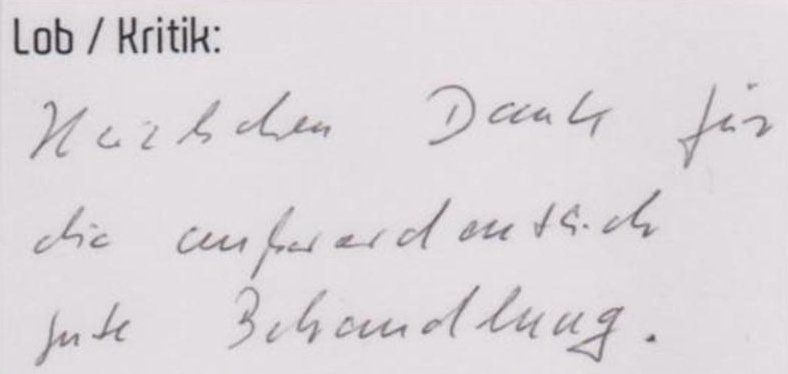 Lob / Kritik:
Herzlichen Dank für
die außerordentlich
gute Behandlung.